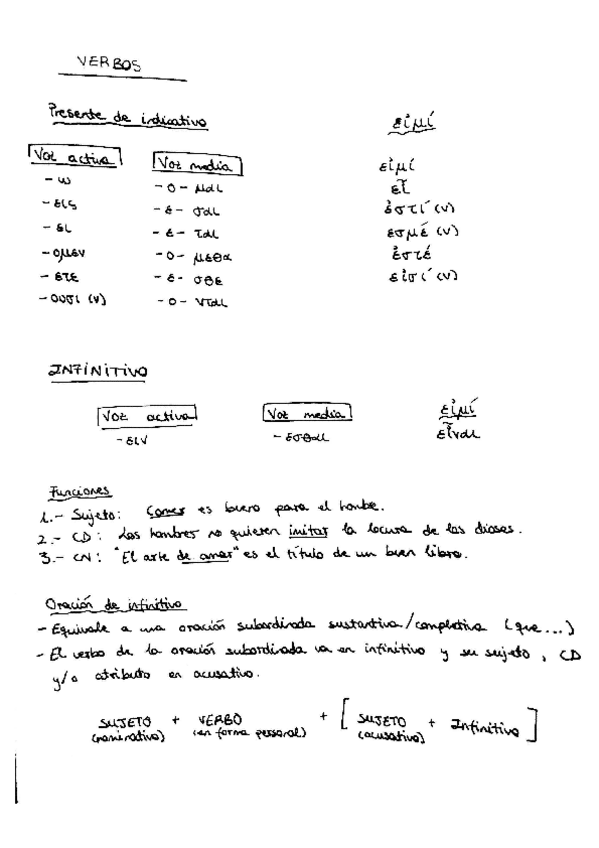 VERBOS
Presente de indicativo εἰμί
Voz activa Voz media εἰμί
-ω -ο-μαι εἶ
-εις -ε-σαι ἐστί(ν)
-ει -ε-ται εσμέ(ν)
-ομεν -ο-μεθα ἐστέ
-ετε -ε-σθε εἰσί(ν)
-ουσι(ν) -ο-νται
INFINITIVO
Voz activa Voz media εἰμί
-ειν -εσθαι εἶναι
Funciones
1.- Sujeto: Comer es bueno para el hombe.
2.- CD: Los hombres no quieren imitar la locura de los dioses.
3.- CN: "El arte de amar" es el título de un buen libro.
Oración de infinitivo
- Equivale a una oración subordinada sustantiva/completiva (que...)
- El verbo de la oración subordinada va en infinitivo y su sujeto, CD
y/o atributo en acusativo.
SUJETO + VERBO + [SUJETO + Infinitivo]
(nominativo) (en forma personal) (acusativo)